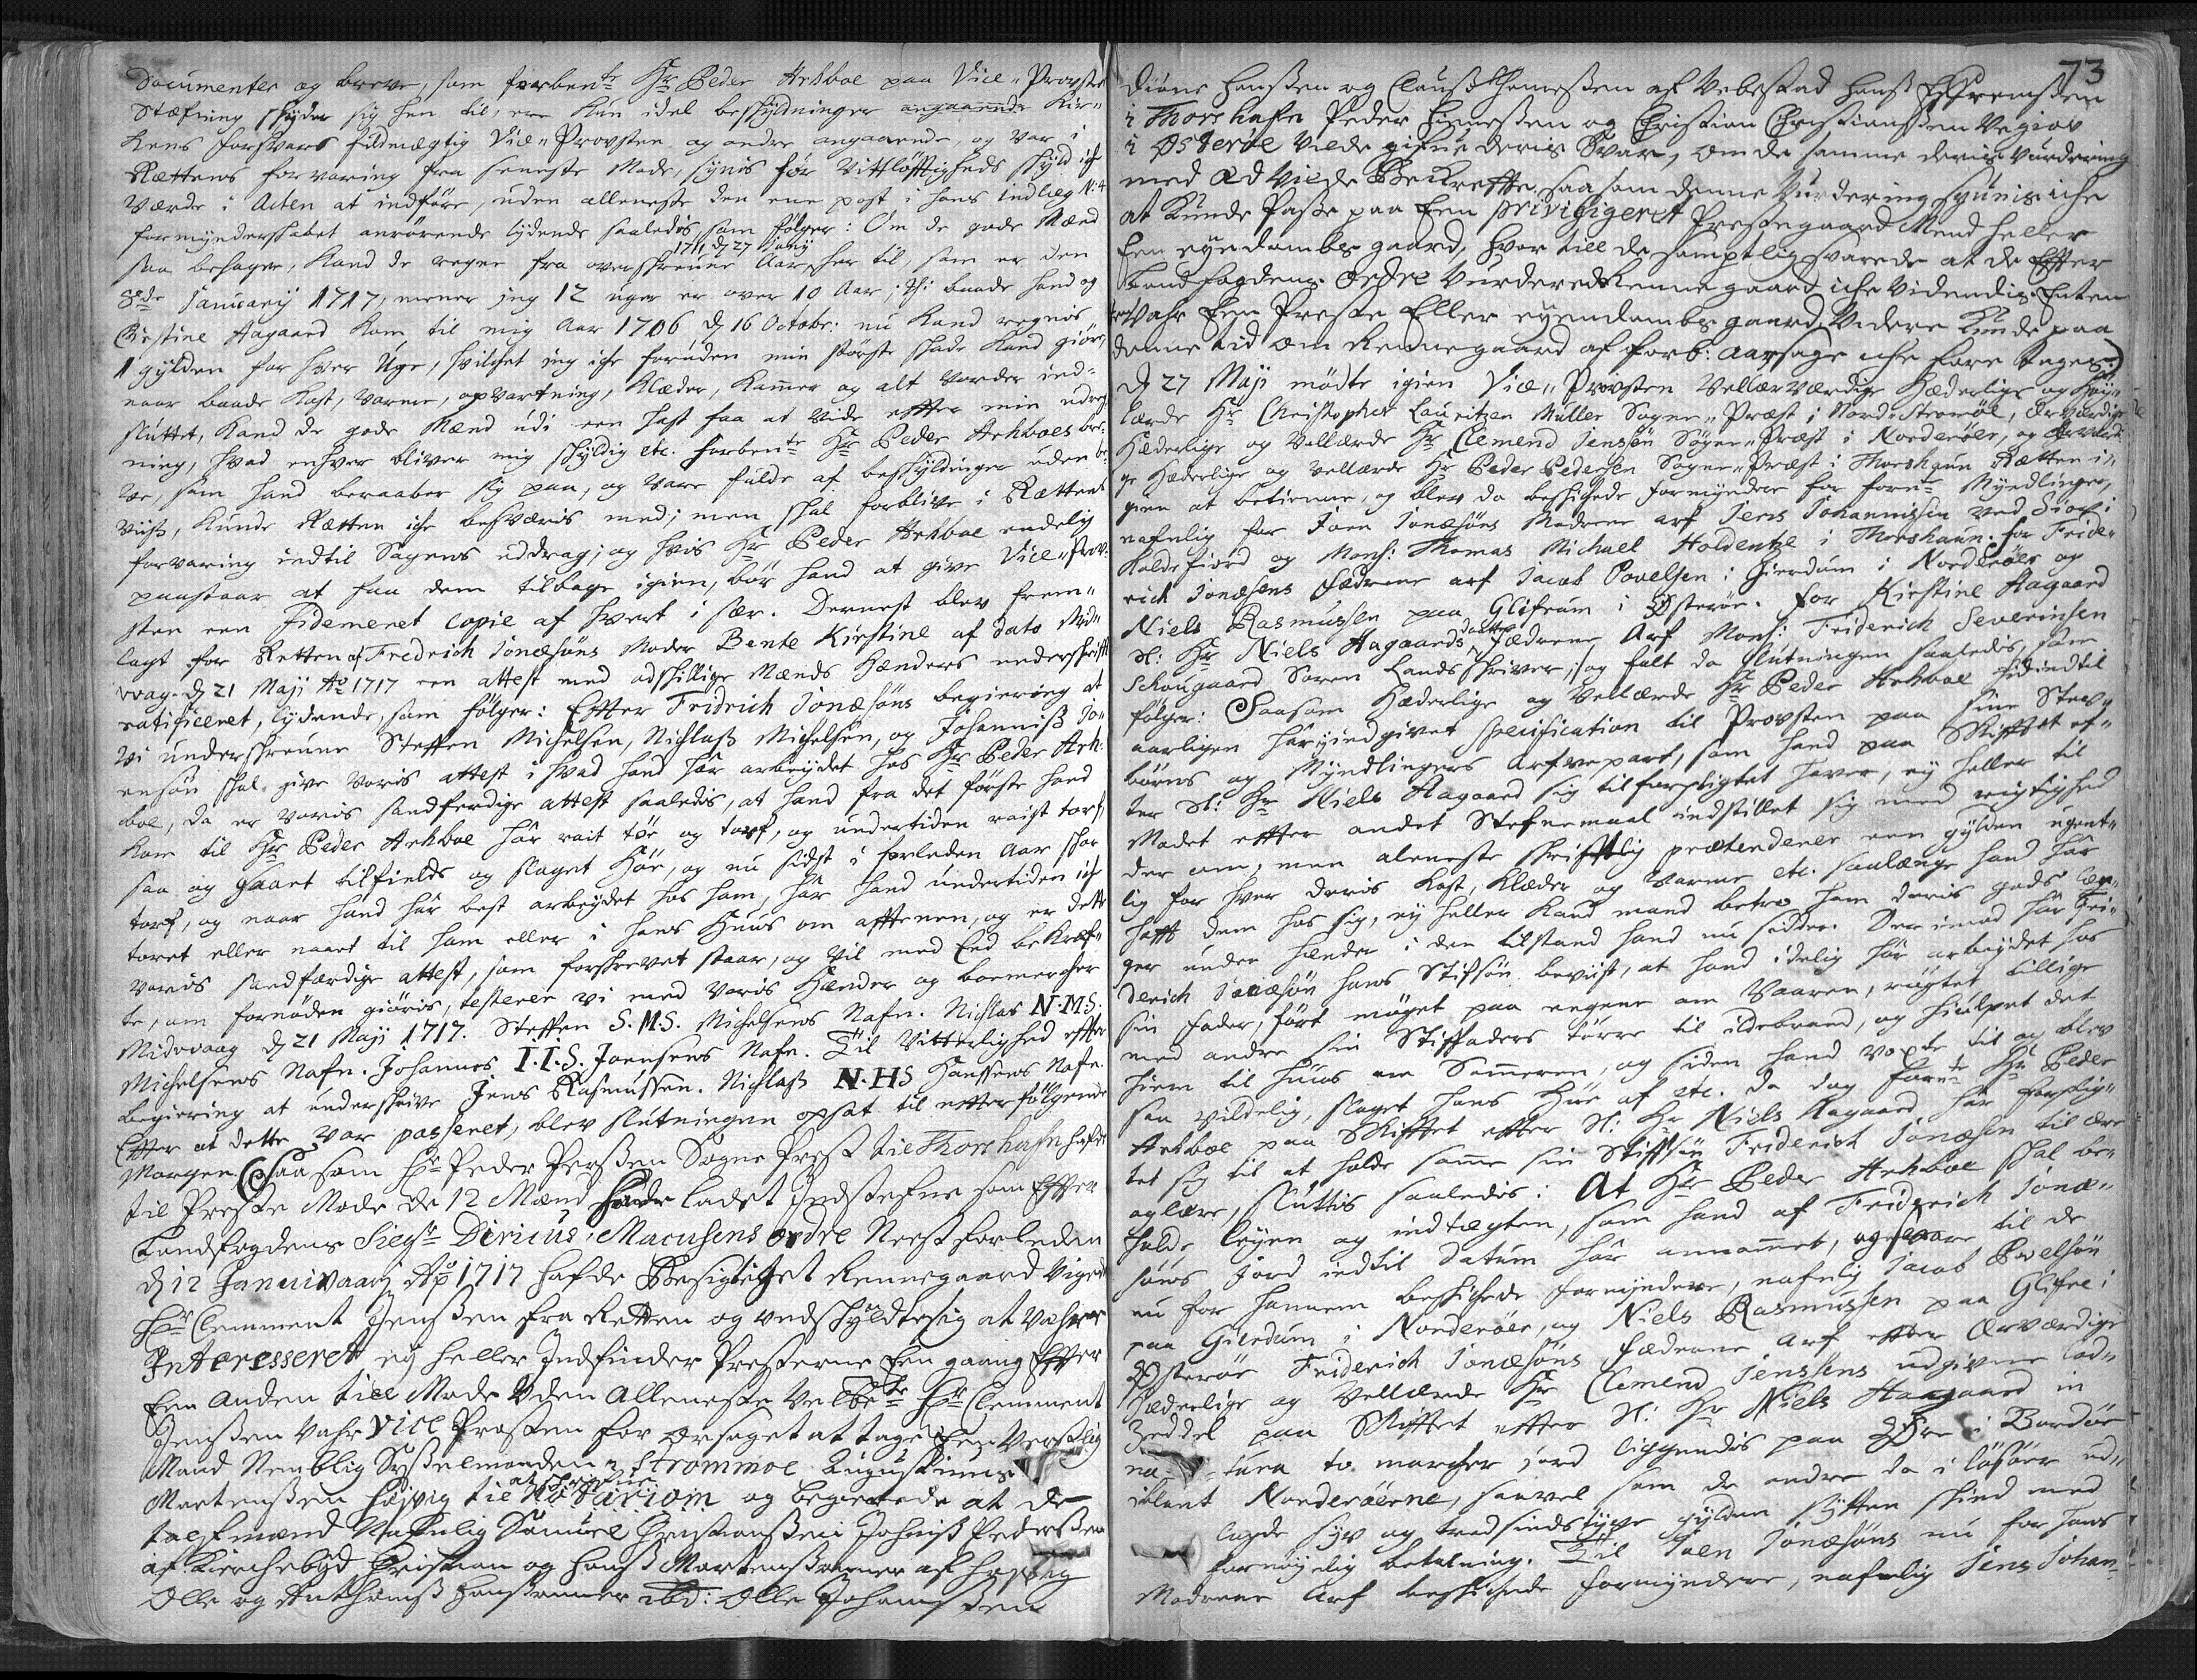 Documenter og breve, som forben:te Hr Peder Arhboe paa Vice-Provstens
Stæfning skyder sig hen til, ere kun idel beskyldninger angaaende Kir-
kens forsvars fuldmægtig Vice-Provsten og andre angaaende, og var i
Rættens forvaring fra seneste Mode, synis før Vittløfftigheds skyld ich
værde i Acten at indføre, uden alleneste den ene post i hans indlæg N: 4
formynderskabet anrørende lydende saaledis, som følger: Om de gode Mænd
saa behager, kand de regne fra overskreune Aar 1711 d 27 Juny her til, som er den
8de Januarij 1717, mener jeg 12 uger er over 10 Aar; Th: baade hand og
Christine Aagaard kom til mig Aar 1706 d 16 Octobr: nu kand regnis
1 gylden for hver Uge, hvilchet jeg iche foruden min største skade kand giøre,
naar baade kost, varme, opvartning, klæder, kamer og alt vorder ind-
sluttet, kand de gode Mænd udi een hast faa at vide effter min udreg-
ning, hvad enhver bliver mig skyldig etc. forben:te Hr Peder Arhboes bre-
ve, som hand beraaber sig paa, og vare fulde af beskyldinger uden be-
viiss, kunde Rætten iche besværis med; men skal forblive i Rættens
forvaring indtil Sagens uddrag; og hvis Hr Peder Arhboe endelig
paastaar at faa dem tilbage igien, bør hand at give Vice-Prov-
sten een Fidemeret copie af hvert i sær. Dernest blev frem-
lagt for Retten af Fredrich Jonæsøns Moder Bente Kirstine af dato Mid-
vaag d 21 Maji Ao 1717 een attest med adskillige Mænds Hænders underskrifft
ratificeret, lydende, som følger: Effter Fridrich Jonæsøns begiering at
vi underskreune Steffen Michelsen, Nichlass Michelsen, og Johanniss Jo-
ensøn skal give voris attest i hvad hand har arbeydet hos Hr Peder Arh-
boe, da er voris sandferdige attest saaledis, at hand fra det første hand
kom til Hr Peder Arhboe har røit tøe og torf, og undertiden reist torf,
saa og gaaet tilfields og slaget høe, og nu sidst i forleden Aar skar
torf, og naar hand har best arbeydet hos ham, har hand undertiden ich
toret eller naaet til ham eller i hans Huus om afftenen, og er dette
voris sandfærdige attest, som forskrevet staar, og vil med Eed bekræf-
te, om fornøden giøris, testerer vi med voris Hænder og boemercher
Midvaag d 21 Maji 1717. Steffen S. M. S. Michelsens Nafn. Nichlas N. M. S.
Michelsens Nafn. Johannes I. I. S. Joensens Nafn. Til Vitterlighed effter
begiering at underskrive Jens Rasmussen. Nichlass N. H S Hanssens Nafn.
Effter at dette var passeret, blev slutningen opsat til effterfølgende
Morgen. Saasom Hr Peder Perssen Sogne Prest til Thorshafn hafde
til Preste Mode de 12 Mænd hafde ladet Indstefne som Effter
Landfogdens Sieg:r Diricus Marcusens ordre Nest forleden
d 12 Januivaarj Ao 1717 hafde Besigtiget Rennegaard Vigede
Hr Clemment Jenssen fra Retten og undskyldte sig at vahre
Interesseret ey heller Indfinder Presterne Een gaang Effter
Een anden till Mode Uden Alleneste Velbe:te Hr Clemment
Jenssen Vahr vice Prosten for aarsaget at tage Een Verslig
Mand Nemblig Sysselmanden i Strommoe Augustinus
Mortenssen Høsvig til at skrifue Notariom og begierede at de
tolf mænd Nafnlig Samuel Christianssen Johnis Pederssen
af Kierchebød Christian og Hanss Mortenssenner af Høsvig
Olle og Anthonis Hanssenner ibd: Olle Johanssen
73
Diøne Hanssen og Clauss Thomessen af Vebestad Hanss Effremssen
i Thorshafn Peder Simessen og Christian Christianssen Vegiov
i Østerøe vilde gifue deris Svar, om de samme deris vurdering
med Æd vilde Bekreffte saasom denne Vurdering syunis iche
at Kunde Passe paa Een privigigeret Prestegaard Mend heller
Een eyendombs gaard, hvor till de samptlig svarede at de Effter
Landfogdens ordre vurderede Rennegaard iche videndis Enten
Vahr Een Preste Eller eyendombs gaard, Videre Kunde paa
denne tid om Rennegaard af forb: aarsage iche fore tages
d 27 Maji mødte igien Vice-Provsten Vellærværdige Hæderlige og Høy-
lærde Hr Christopher Lauritzen Müller Sogne-Præst i Nord-Strømøe, Ærværdige
Hæderlige og Vellærde Hr Clemend Jensøn Sogne-Præst i Norderøer, og Ærværdi-
ge Hæderlige og Vellærde Hr Peder Pedersen Sogne-Præst i Thorshaun Rætten i-
gien at betienne, og blev da beskichede formyndere for foren:te Myndlinger,
nafnlig for Joen Jonæsøns Mødrene arf Jens Johannissen ved Siov i
Kaldefiord og Mons: Thomas Michael Holdentze i Thorshaun. for Fride-
rich Jonæsens Fædrene arf Jacob Povelsen i Gierdum i Norderøer og
Niels Rasmussen paa Glifrum i Østerøe. for Kirstine Aagaard
Sl: Hr Niels Aagaards daatter Fædrene Arf Mons: Friderich Severinsen
Schougaard Soren Landsskriver; og falt da slutningen saaledis, som
følger: Saasom Hæderlige og Vellærde Hr Peder Arhboe tidindtil
aarligen har indgivet specification til Provsten paa sine Steb-
børns og Myndlingers Arfvepart, som hand paa Skifftet ef-
ter Sl: Hr Niels Aagaard sig tilforpligtet haver, ey heller til
Modet effter andet Stefnemaal indstillet sig med rigtighed
der om, men aleneste skrifftlig prætenderer een gylden ugent-
lig for hver deris kost, klæder og varme etc. saalænge hand har
hafft dem hos sig, ey heller kand mand betroe ham deris gods læn-
ger under hænder i den tilstand hand nu sidder. Derimod har Fri-
derich Jonæsøn hans Stifsøn beviist, at hand idelig har arbeydet hos
sin Fader, ført møget paa engene om Vaaren, røgtet tillige
med andre sin Stiffaders tørre til ildebrand, og hiulpet det
hiem til huus om Sommeren, og siden hand voxte til og blev
saa vildelig, slaget hans høe af etc. da dog foren:te Hr Peder
Arhboe paa Skifftet effter Sl: Hr Niels Aagaard har forplig-
tet sig til at holde samme sin Stiffsøn Friderich Jonæsen til ære
og lære, sluttis saaledis: At Hr Peder Arhboe skal be-
holde leyen og indtægten, som hand af Friderich Jonæ-
søns Jord indtil datum har annammet, og svare til de
nu for hannem beskichede formyndere, nafnlig Jacob Poelsøn
paa Gierdum i Norderøer, og Niels Rasmussen paa Glifre i
Østerøe Friderich Jonæsøns Fædrene arf effter Ærværdige
Hæderlige og Vellærde Hr Clemend Jenssens udgivne lod-
Zeddel paa Skifftet effter Sl: Hr Niels Aagaard in
na-tura to marcher jord liggendis paa Øre i Bordøe
iblant Norderøerne, saavel som de andre da i løssøer ud-
lagde syv og tredsindstyve gylden sytten skind med
fornøyelig betalning. Til Joen Jonæsøns nu for hans
Mødrene Arf beskichede formyndere, nafnlig Jens Johan-